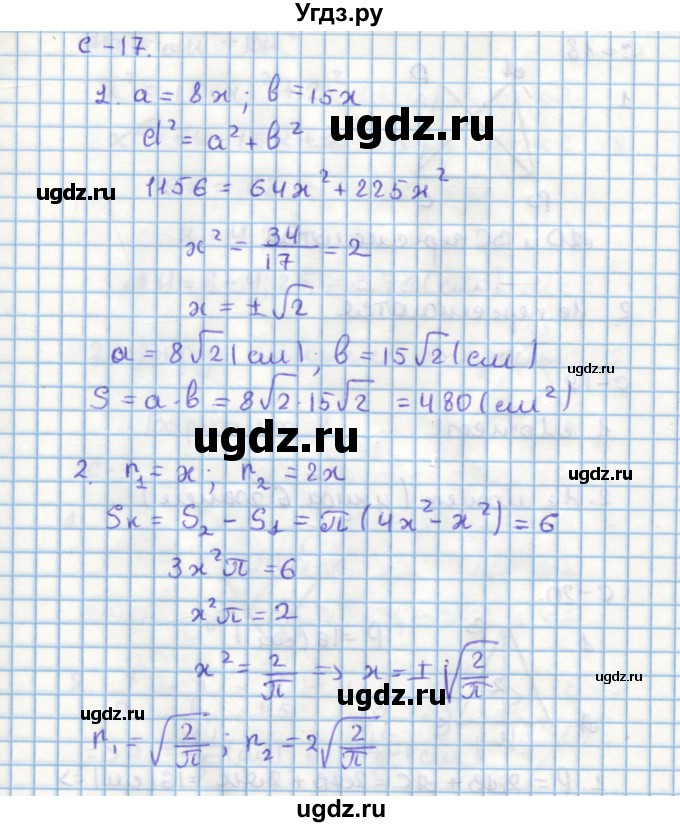 Угдз.ру
С-17.
1. a = 8x; b = 15x
ugdz.ru
d² = a² + b²
ugdz.ru
1156 = 64x² + 225x²
x² = 34/17 = 2
ugdz.ru
x = ±√2
a = 8√2 (см); b = 15√2 (см)
ugdz.ru
S = a · b = 8√2 · 15√2 = 480 (см²)
ugdz.ru
2. r₁ = x; r₂ = 2x
Sк = S₂ - S₁ = π(4x² - x²) = 6
ugdz.ru
3x²π = 6
x²π = 2
x² = 2/π => x = ±√(2/π)
ugdz.ru
ugdz.ru
ugdz.ru
r₁ = √(2/π); r₂ = 2√(2/π)
ugdz.ru
ugdz.ru